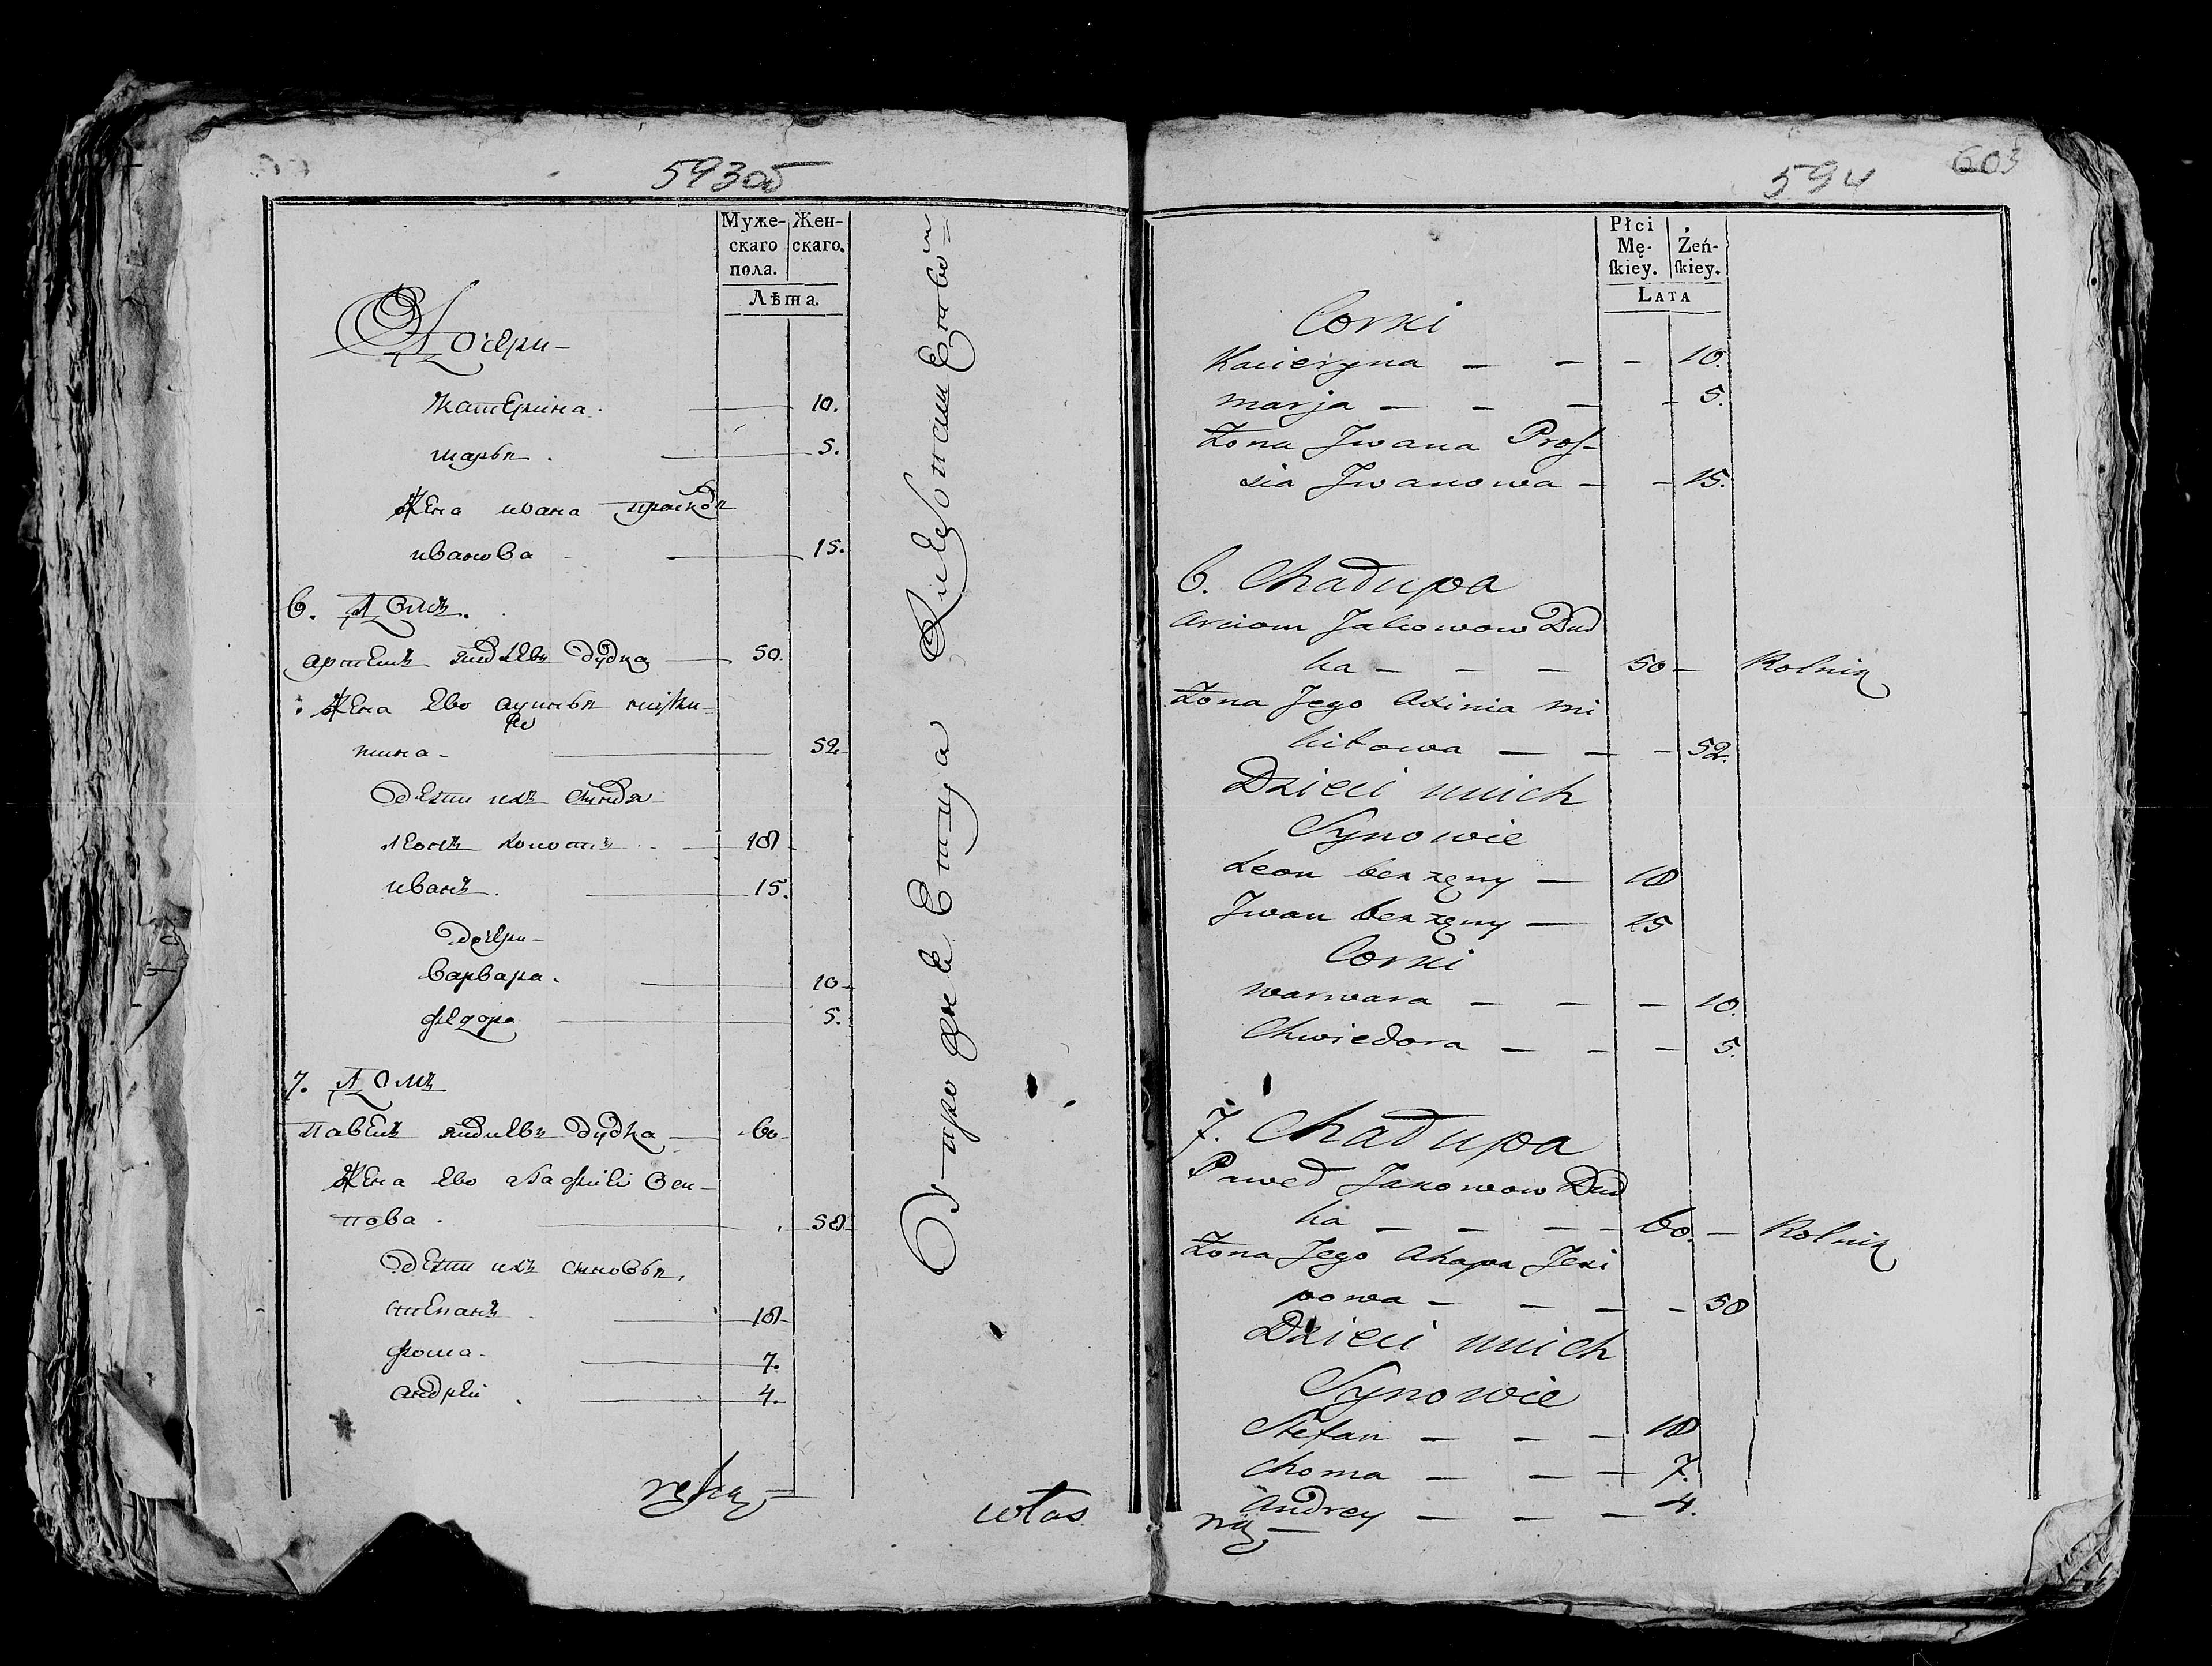 593об
Муже-
скаго
пола.
Жен-
скаго.
Лѣта.
Дочери –
Катерина. 10.
марья. 5.
Жена ивана
иванова 15.
6. Домъ.
артемъ Дудка 50.
Жена Ево
тина – 52
Дети ихъ
леонъ холостъ 18
иванъ. 15.
Дочери –
варвара. 10
федора 5.
7. Домъ
павелъ Дудка 60
Жена Ево Оси-
пова. 58
Дети ихъ сыновья
степанъ 18
фома – 7.
андрей 4.
ręką
własną
594
603
Płci
Mę-
skiey.
Żeń-
skiey.
LATA
Corki
Kacieryna — — — 10.
marja — — — — 5.
Żona Jwana Pros-
sia Jwanowa — — 15.
6. Chałupa
Arciom Jakowow Dud
ka — — — 50 — Rolnik
Żona Jego Axinia mi
kitowa — — — 52.
Dzieci wnich
Synowie
Leon bez żęny — 18
Jwan bez żęny — 15
Corki
warwara — — — 10.
Chwiedora — — — 5.
7. Chałupa
Paweł Jakowow Dud
ka — — — — 60. — Rolnik
Żona Jego Ahapa
powa — — — — 58
Dzieci wnich
Synowie
Stefan — — — 18
Choma — — — 7.
Andrey — — — 4.